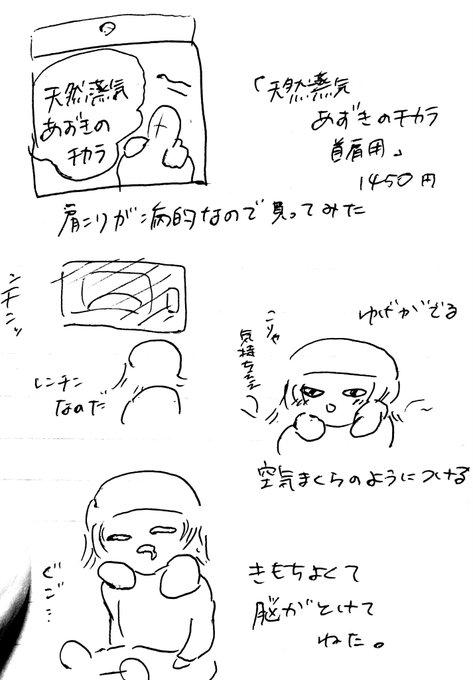 天然蒸気
あずきの
チカラ
「天然蒸気
あずきのチカラ
首肩用」
1450円
肩こりが病的なので買ってみた
ンチンッ
レンチン
なのだ
ゆげがでる
こりゃ
気持ちええ
空気まくらのようにつける
ぐご…
きもちよくて
脳がとけて
ねた。